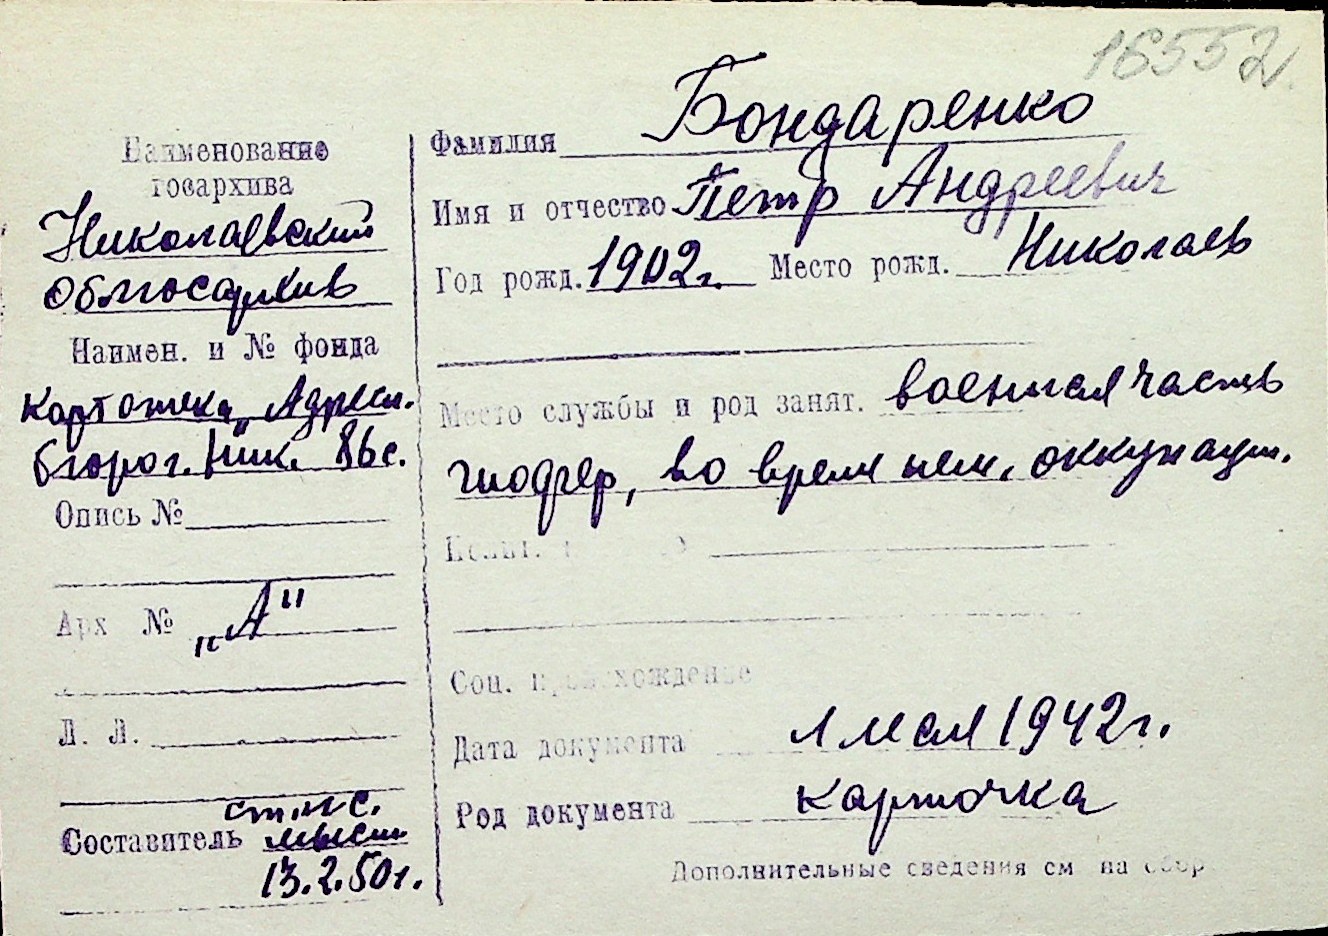 16552
Наименование
госархива
Николаевский
Облгосархив
Наимен. и № фонда
картотека „Адресн.
бюро г. Ник. 86с.
Опись №
Арх №
„А"
Л. Л.
ст. н с.
Составитель
13.2.50г.
Фамилия Бондаренко
Имя и отчество Петр Андреевич
Год рожд. 1902г. Место рожд. Николаев
Место службы и род занят. военная часть
шофер, во время нем. оккупации.
Соц. происхождение
Дата документа 1 мая 1942г.
Род документа карточка
Дополнительные сведения см на обор